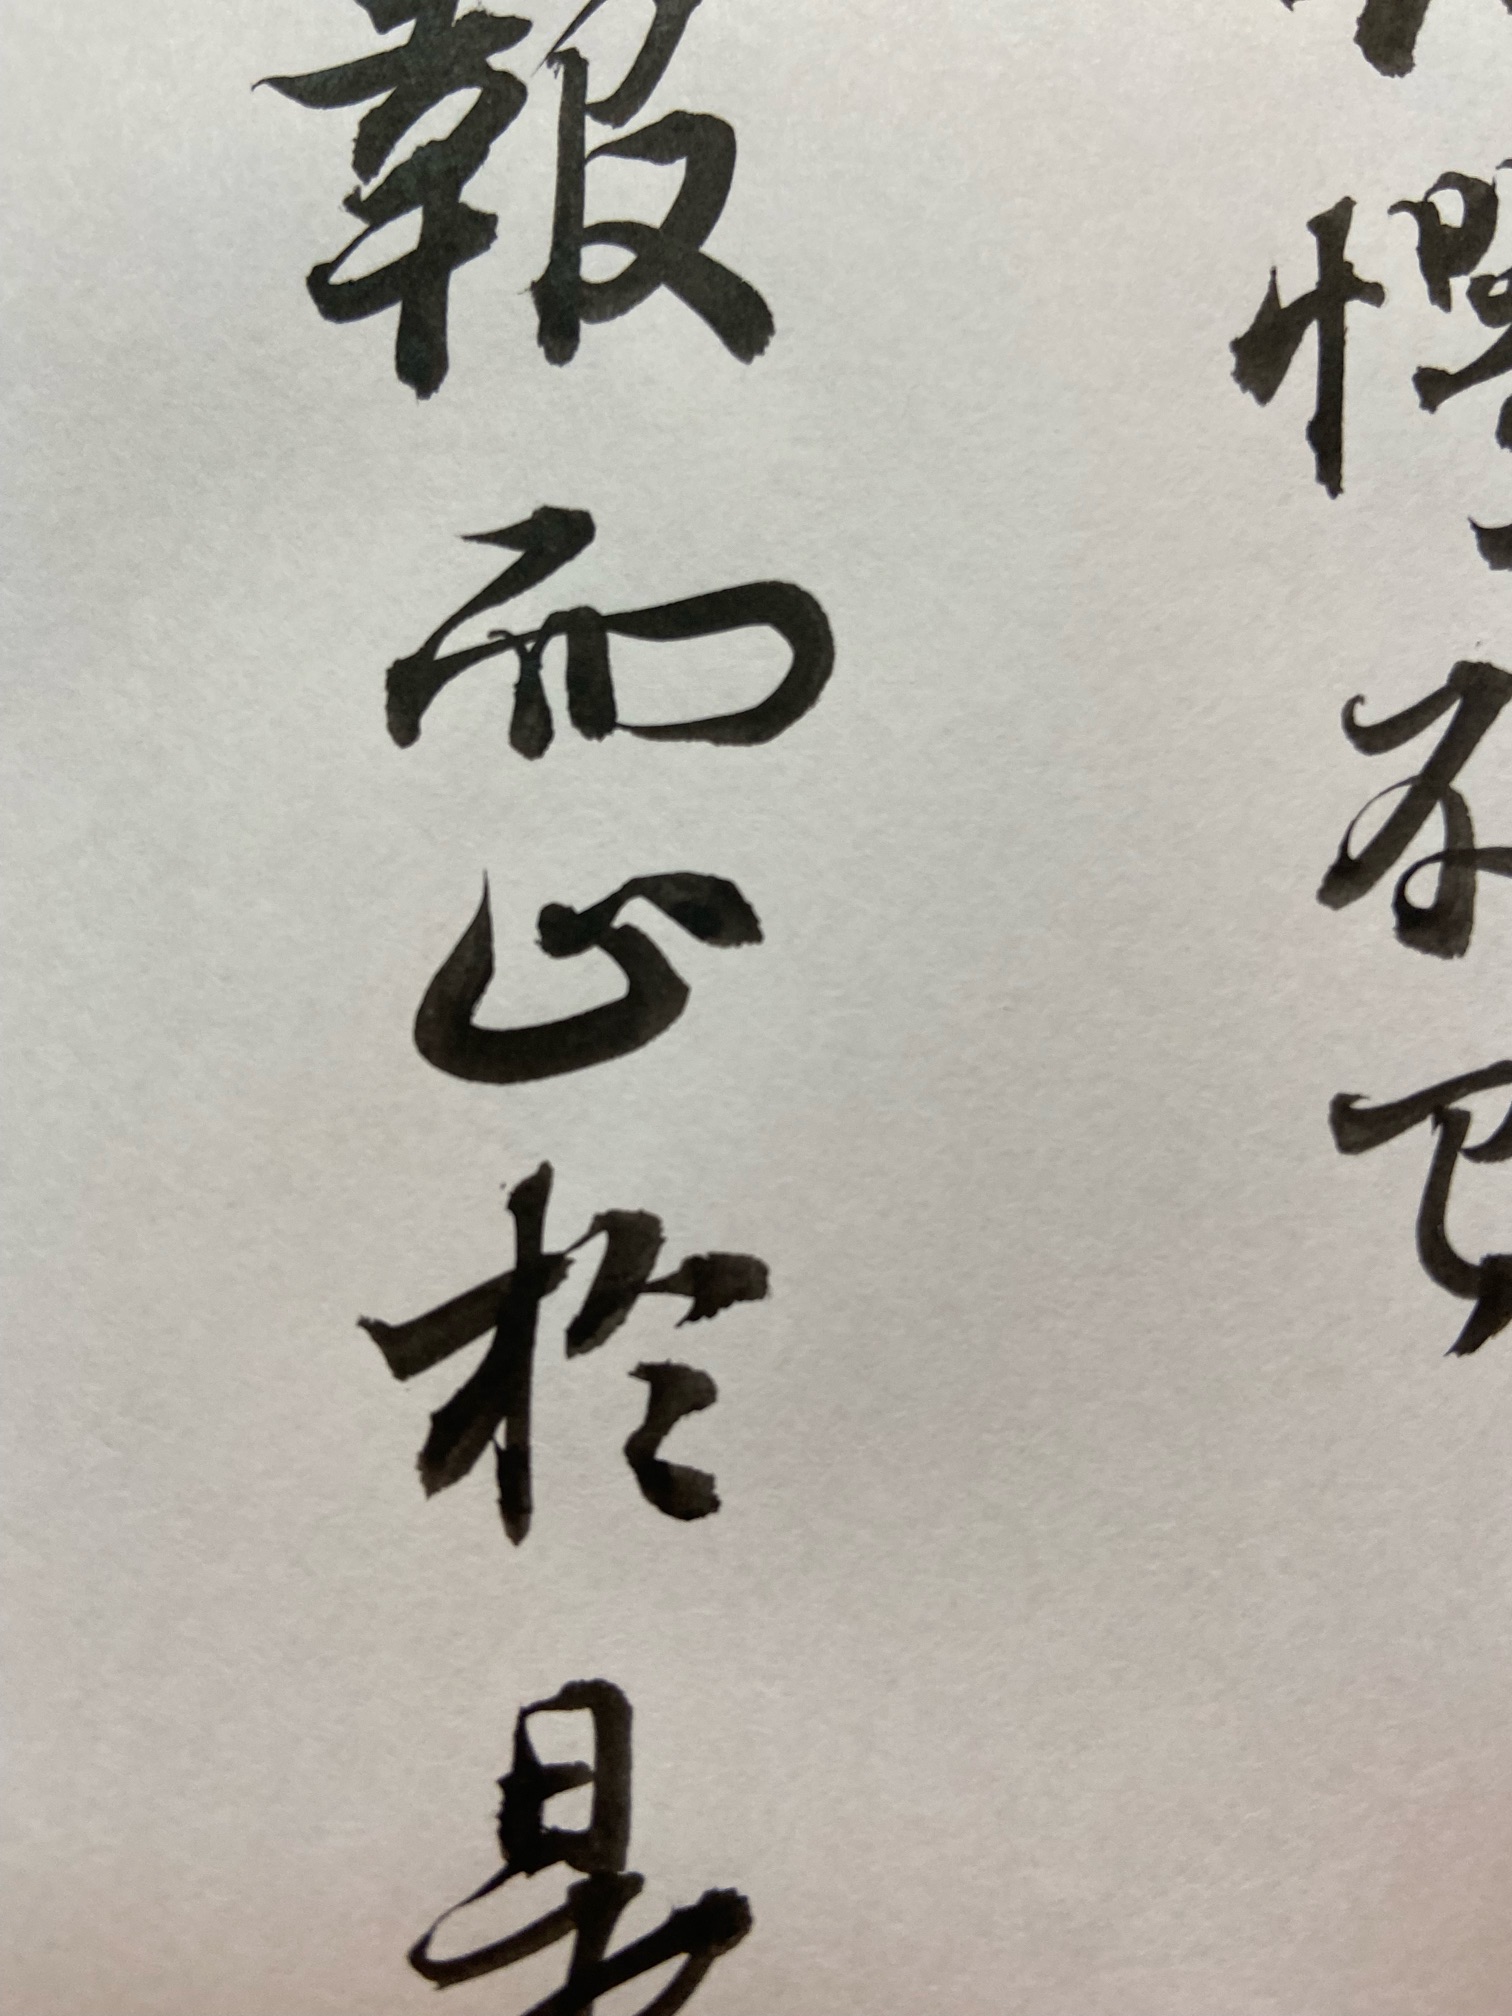 懼不已
報而心於是